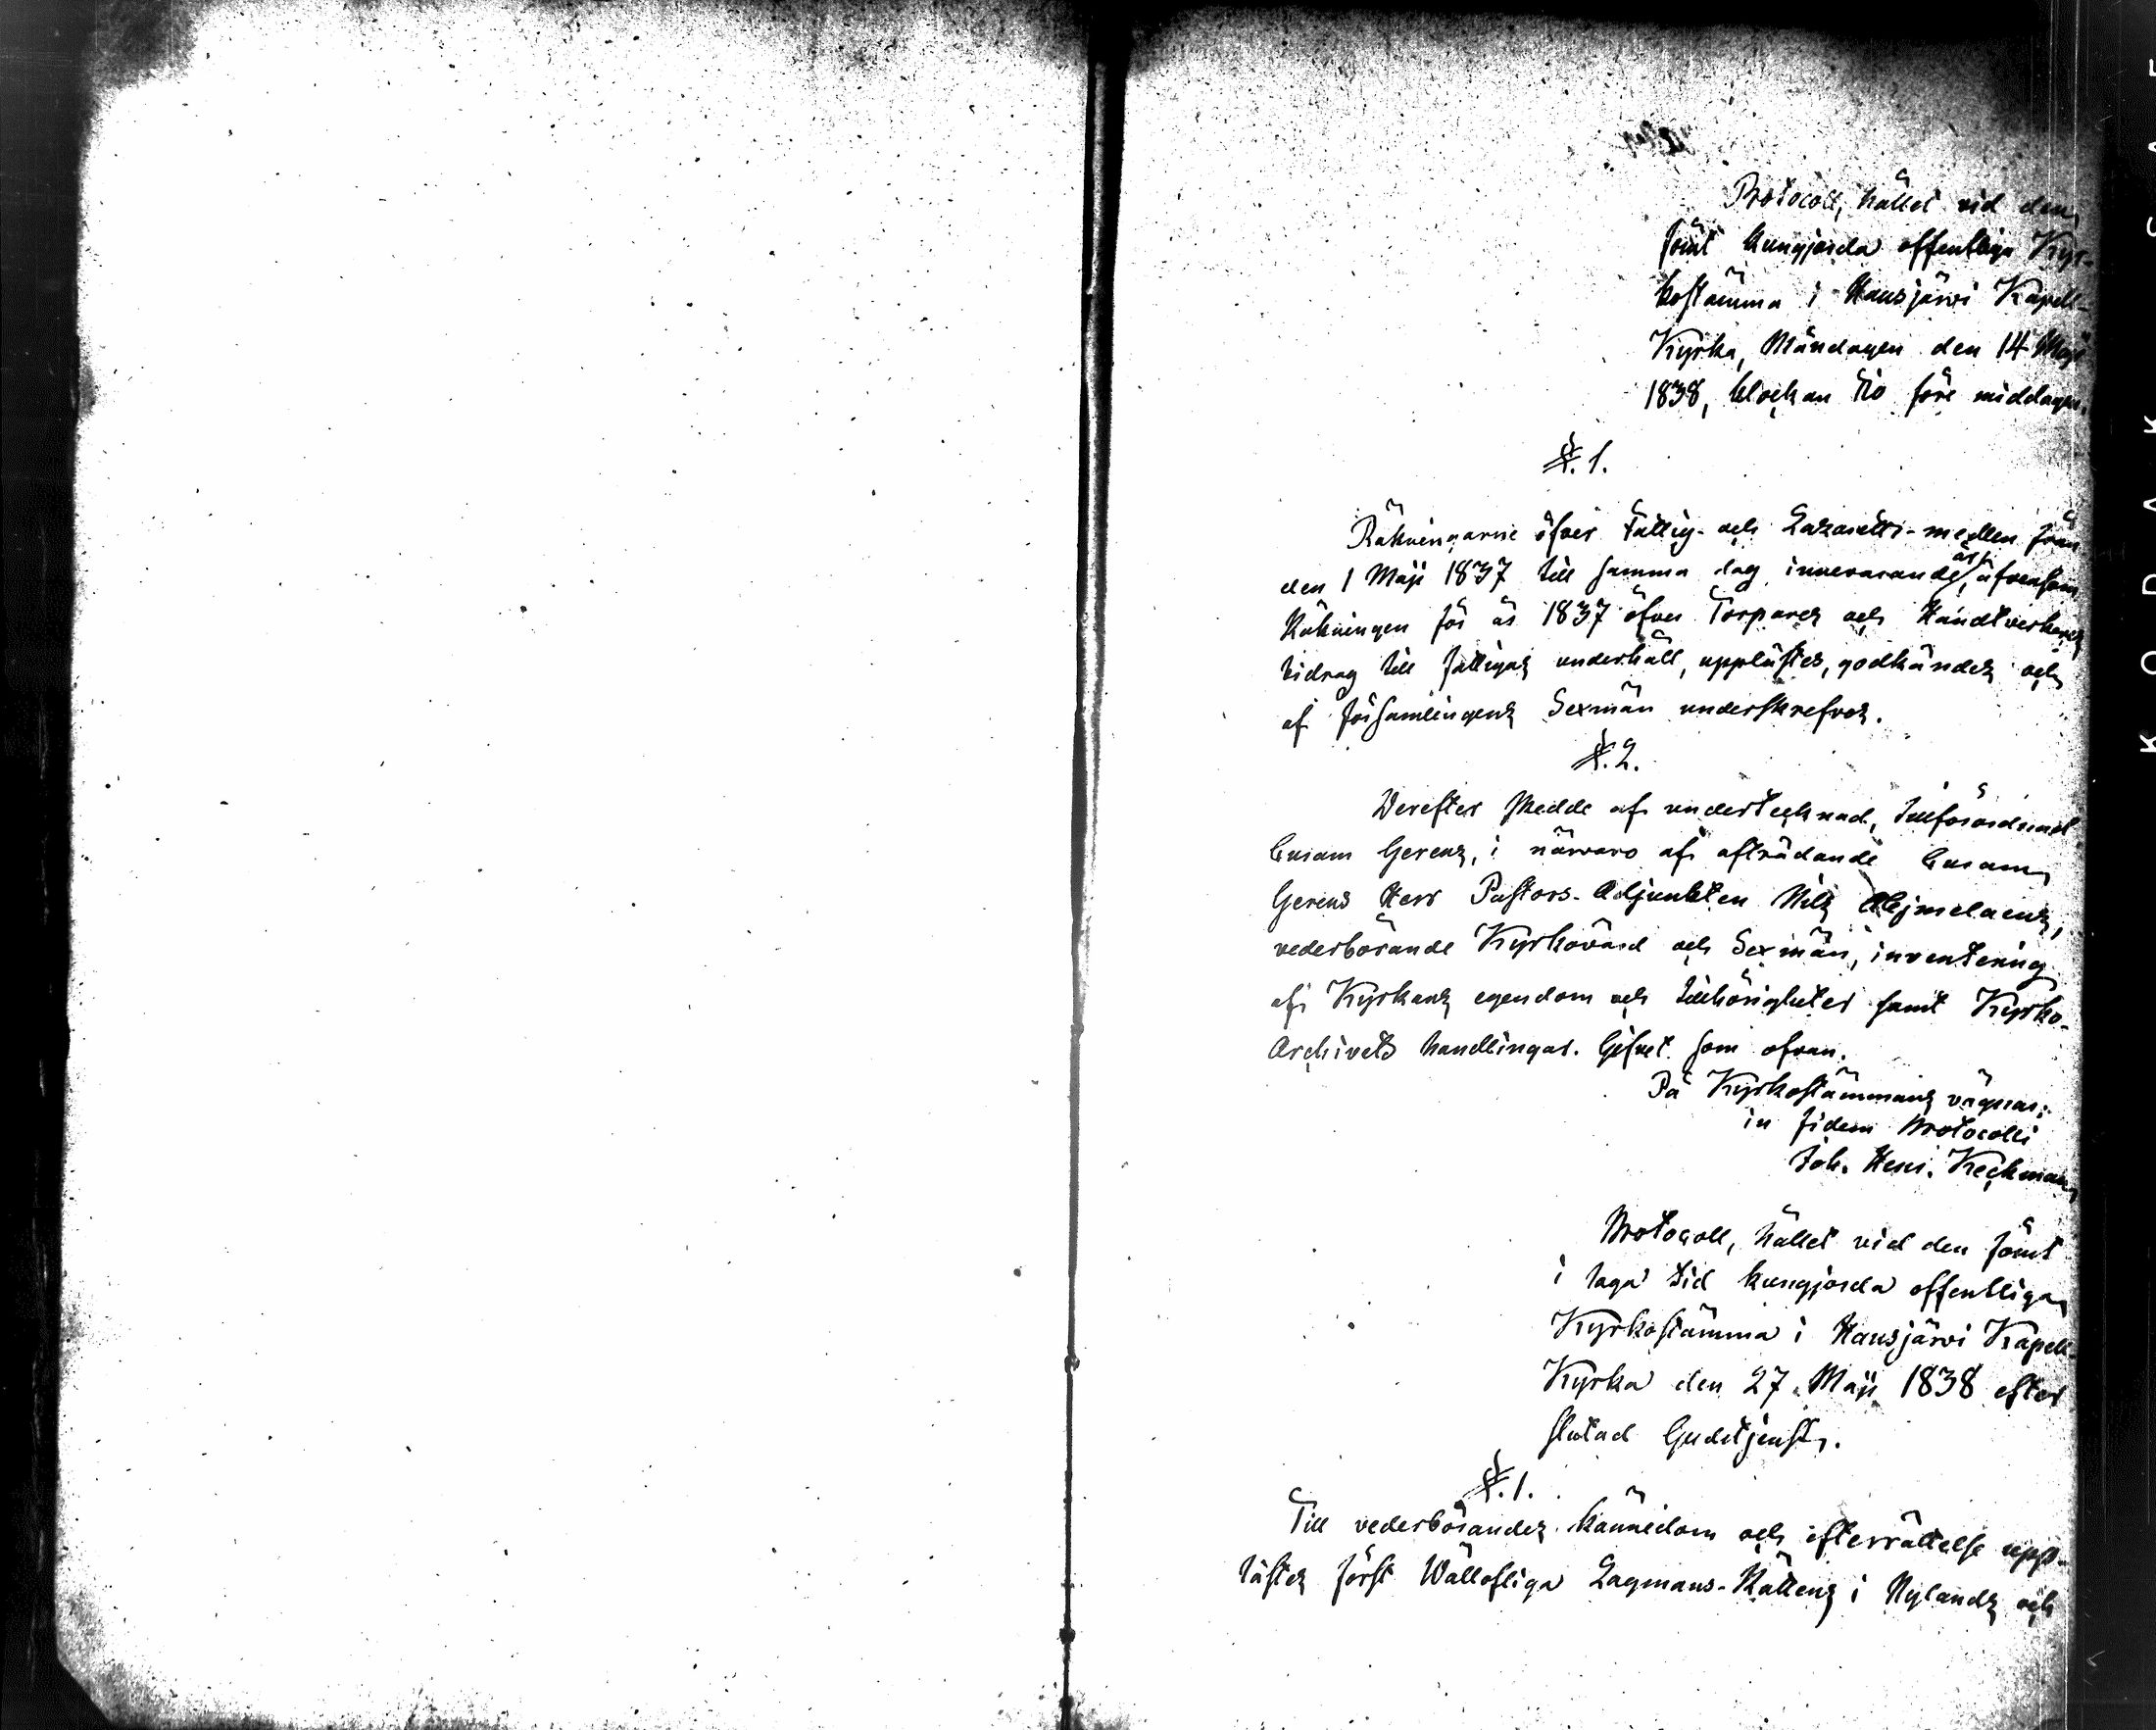 Protocoll, hållet vid den
förut kungjorda offentliga Kyr-
kostämma i Hausjärvi Kapell-
Kyrka, Måndagen den 14 Maji
1838, klockan tio före middagen.
§. 1.
Räkningarne öfver Fattig- och Lazaretts-medlen från
den 1 Maji 1837 till samma dag innevarande år, äfvensom
Räkningen för år 1837 öfver Torpares och Handtverkares
bidrag till fattigas underhåll, upplästes, godkändes och
af församlingens Sexmän underskrefvos.
§. 2.
Derefter skedde af undertecknad, tillförordnad
Curam Gerens, i närvaro af afträdande Curam
Gerens Herr Pastors-Adjunkten Nils
vederbörande Kyrkovärd och Sexmän, inventering
af Kyrkans egendom och tillhörigheter samt Kyrko-
Archivets handlingar. Gifvet som ofvan.
På Kyrkostämmans vägnar:
in fidem Protocolli
Joh. Henr. Keckman
Protocoll, hållet vid den förut
i laga tid kungjorda offentliga
Kyrkostämma i Hausjärvi Kapell-
Kyrka den 27 Maji 1838 efter
slutad Gudstjenst.
§. 1.
Till vederbörandes kännedom och efterrättelse upp-
lästes först Wällofliga Lagmans-Rättens i Nylands och
KODAK SAFE